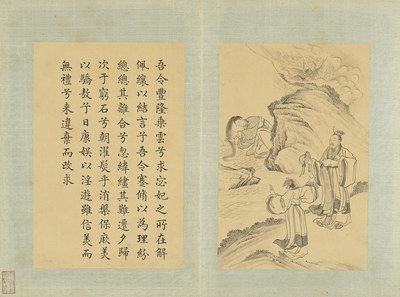 吾令豐隆乘雲兮求宓妃之所在解
佩纕以結言兮吾令蹇脩以為理紛
總總其離合兮忽緯繣其難遷夕歸
次于窮石兮朝濯髮乎洧槃保厥美
以驕敖兮日康娛以淫遊雖信美而
無禮兮來違棄而改求